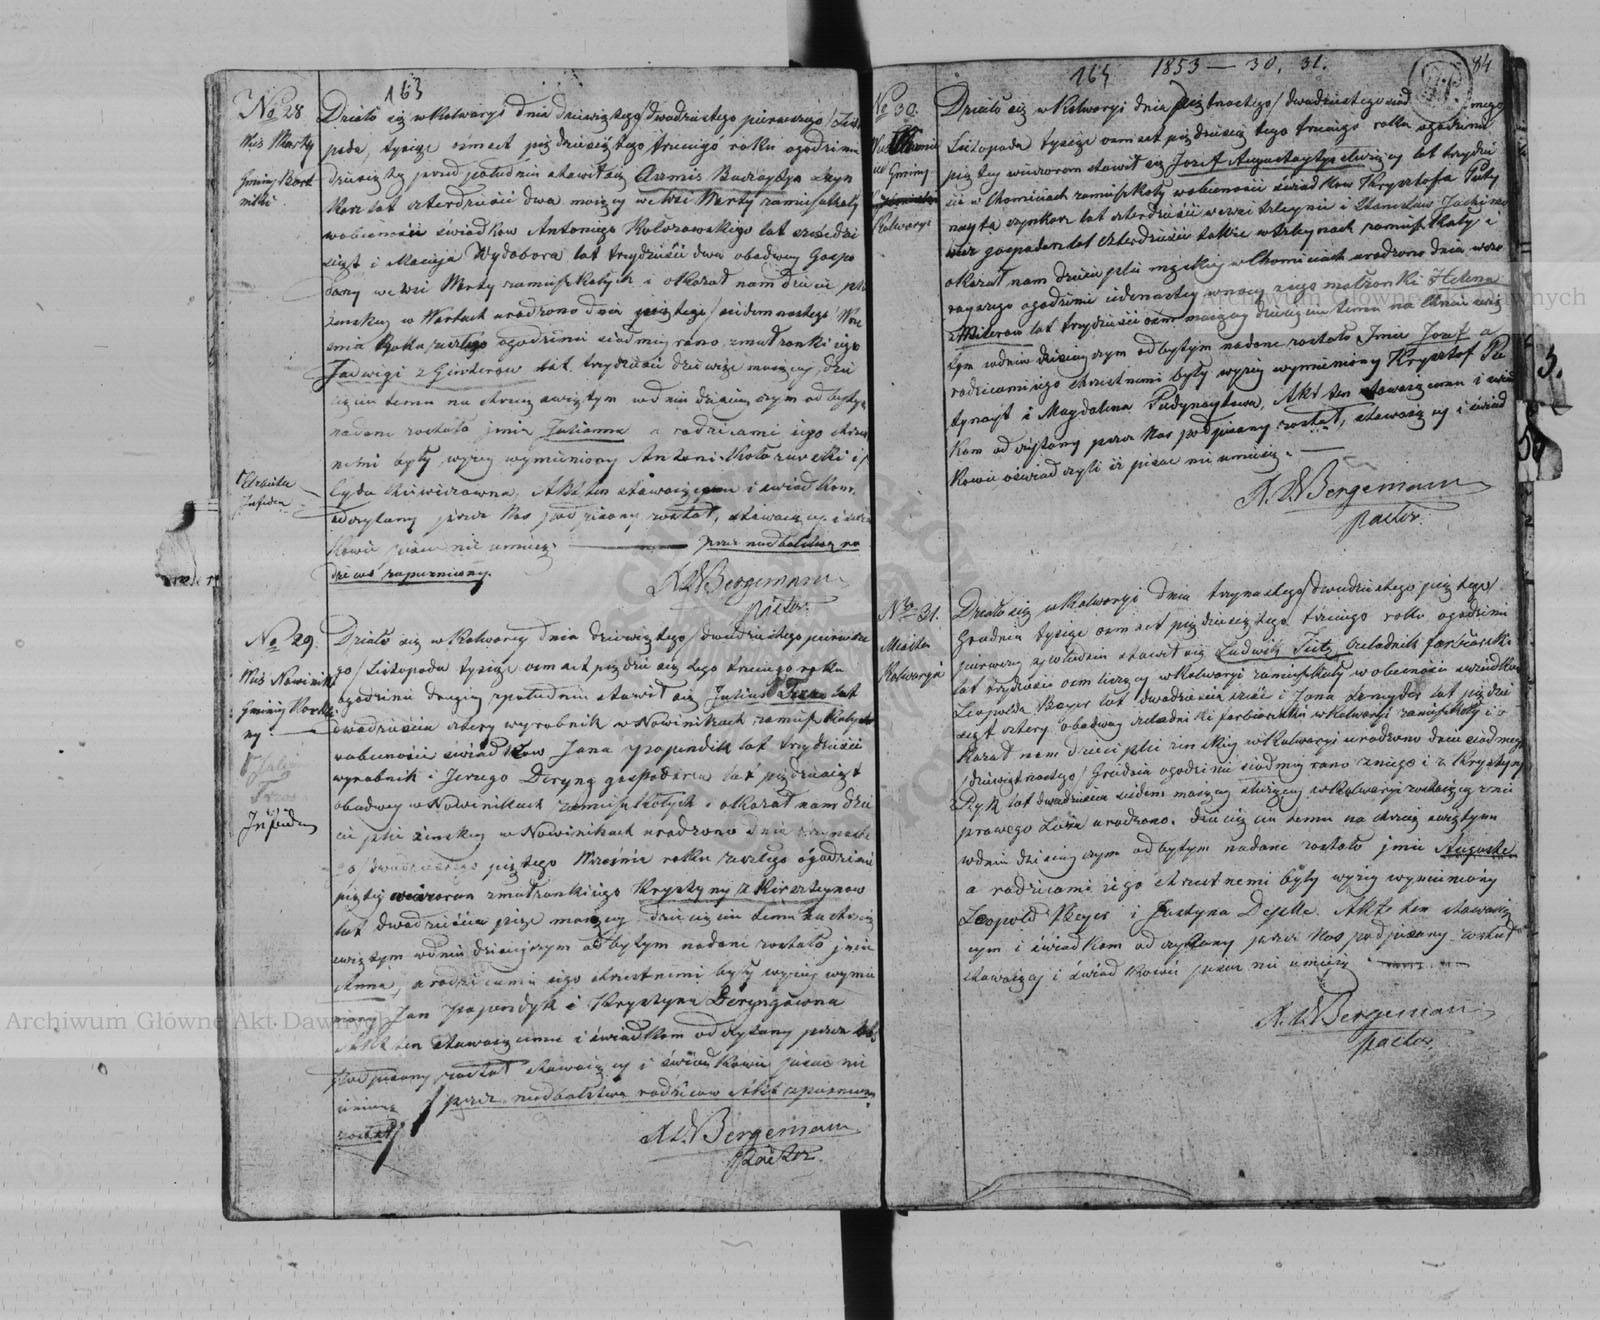 163
No 28
Wieś Marty
Gminy Bart
niki
Działo się w Kalwaryi dnia dziewiątego/dwudziestego pierwszego/Listo
pada, tysiąc ośmset pięćdziesiątego trzeciego roku o godzinie
dziesiątej przed południem stawił się
karz lat czterdzieści dwa mający we wsi Marty zamieszkały
w obecności świadków Antoniego Kołozowskiego lat sześćdzie
siąt i Macieja Wydobora lat trzydzieści dwa obadwaj Gospo
darzy we wsi Marty zamieszkałych i okazał nam dziecie płci
żeńskiej w Martach urodzone dnia piątego/siedemnastego/Wrze
śnia roku zeszłego o godzinie siódmej rano z małżonki jego
Jadwigi z Ginterów lat trzydzieści dziewięć mającej, dzie
cięciu temu na chrzcie świętym w dniu dzisiejszym odbytym
nadane zostało imie Julianna a rodzicami jego chrzest
nemi byli wyżej wymieniony Antoni Kołozowski i
. Akt ten stawającemu i świadkom
odczytany przez Nas podpisany został, stawający i świad
kowie pisać nie umieją. przez niedbalstwo ro
dziców zapóźniony.
A. W. Bergemann
pastor.
No 29.
Wieś Nowiniki
Gminy
Działo się w Kalwaryi dnia dziewiątego/dwudziestego pierwsze
go/Listopada tysiąc ośmset pięćdziesiątego trzeciego roku
o godzinie drugiej z południa stawił się Julius lat
dwadzieścia cztery wyrobnik w Nowinikach zamieszkały
w obecności świadków Jana lat trzydzieści
wyrobnik i Jerzego Deryng gospodarza lat pięćdziesiąt
obadwaj w Nowinikach zamieszkałych i okazał nam dzie
cie płci żeńskiej w Nowinikach urodzone dnia trzynaste
go/dwudziestego piątego Września roku zeszłego o godzinie
piątej wieczorem z małżonki jego Krystyny z Kirsztejnów
lat dwadzieścia pięć mającej dziecięciu temu na chrzcie
świętym w dniu dzisiejszym odbytym nadane zostało imie
Anna, a rodzicami jego chrzestnemi byli wyżej wymie
niony Jan i Krystyna Deryngówna
Akt ten stawającemu i świadkom odczytany przez Nas
podpisany został stawający i świadkowie pisać nie
umieją przez niedbalstwo rodziców Akt zapóźniony
został
A. W. Bergemann
Pastor.
164 1853 — 30, 31.
84
No 30.
Gminy
Kalwaryi
Działo się w Kalwaryi dnia piętnastego/dwudziestego siód mego
Listopada tysiąc ośmset pięćdziesiątego trzeciego roku o godzinie
piątej wieczorem stawił się Jozef lat trzydzie
ści w Chomiciach zamieszkały w obecności świadków Krysztofa Pety
nayta szynkarz lat czterdzieści we wsi i Stanisław
wicz gospodarz lat czterdzieści także w zamieszkały i
okazał nam dziecie płci męskiej w Chomiciach urodzone dnia wczo
rayszego o godzinie jedenastej w nocy z jego małżonki Helena
z Millerów lat trzydzieści ośm mającej dziecięciu temu na Chrzcie świę
tym w dniu dzisiejszym odbytym nadane zostało Imie Jozef a
rodzicami jego chrzestnemi byli wyżej wymieniony Krysztof Pe
tynayt i Magdalena Petynaytowa, Akt ten stawającemu i świad
kom odczytany przez Nas podpisany został, stawający i świad
kowie oświadczyli iż pisać nie umieją.
A. W. Bergemann
pastor.
No 31.
Miasto
Kalwarya
Działo się w Kalwaryi dnia trzynastego/dwudziestego piątego/
Grudnia tysiąc ośmset pięćdziesiątego trzeciego roku o godzinie
pierwszej z południa stawił się Ludwik Titz czeladnik farbiarski
lat trzydzieści ośm liczący w Kalwaryi zamieszkały w obecności świadków
Leopolda Beyer lat dwadzieścia sześć i Jana lat pięćdzie
siąt cztery obadwaj czeladniki farbiarskie w Kalwaryi zamieszkały i o
kazał nam dziecie płci żeńskiej w Kalwaryi urodzone dnia siódmego
/dziewiętnastego/Grudnia o godzinie siódmej rano z niego i z Krystyny
Pyk lat dwadzieścia siedem mającej służącej w Kalwaryi zostającej z nie
prawego łoża urodzone. dziecięciu temu na chrzcie świętym
w dniu dzisiejszym odbytym nadane zostało imie Auguste
a rodzicami jego chrzestnemi byli wyżej wymieniony
Leopold Beyer i Justyna . Akt ten stawają
cym i świadkom odczytany przez Nas podpisany został
stawający i świadkowie pisać nie umieją
A. W. Bergemann
pastor.
Archiwum Główne Akt Dawnych
Archiwum Główne Akt Dawnych